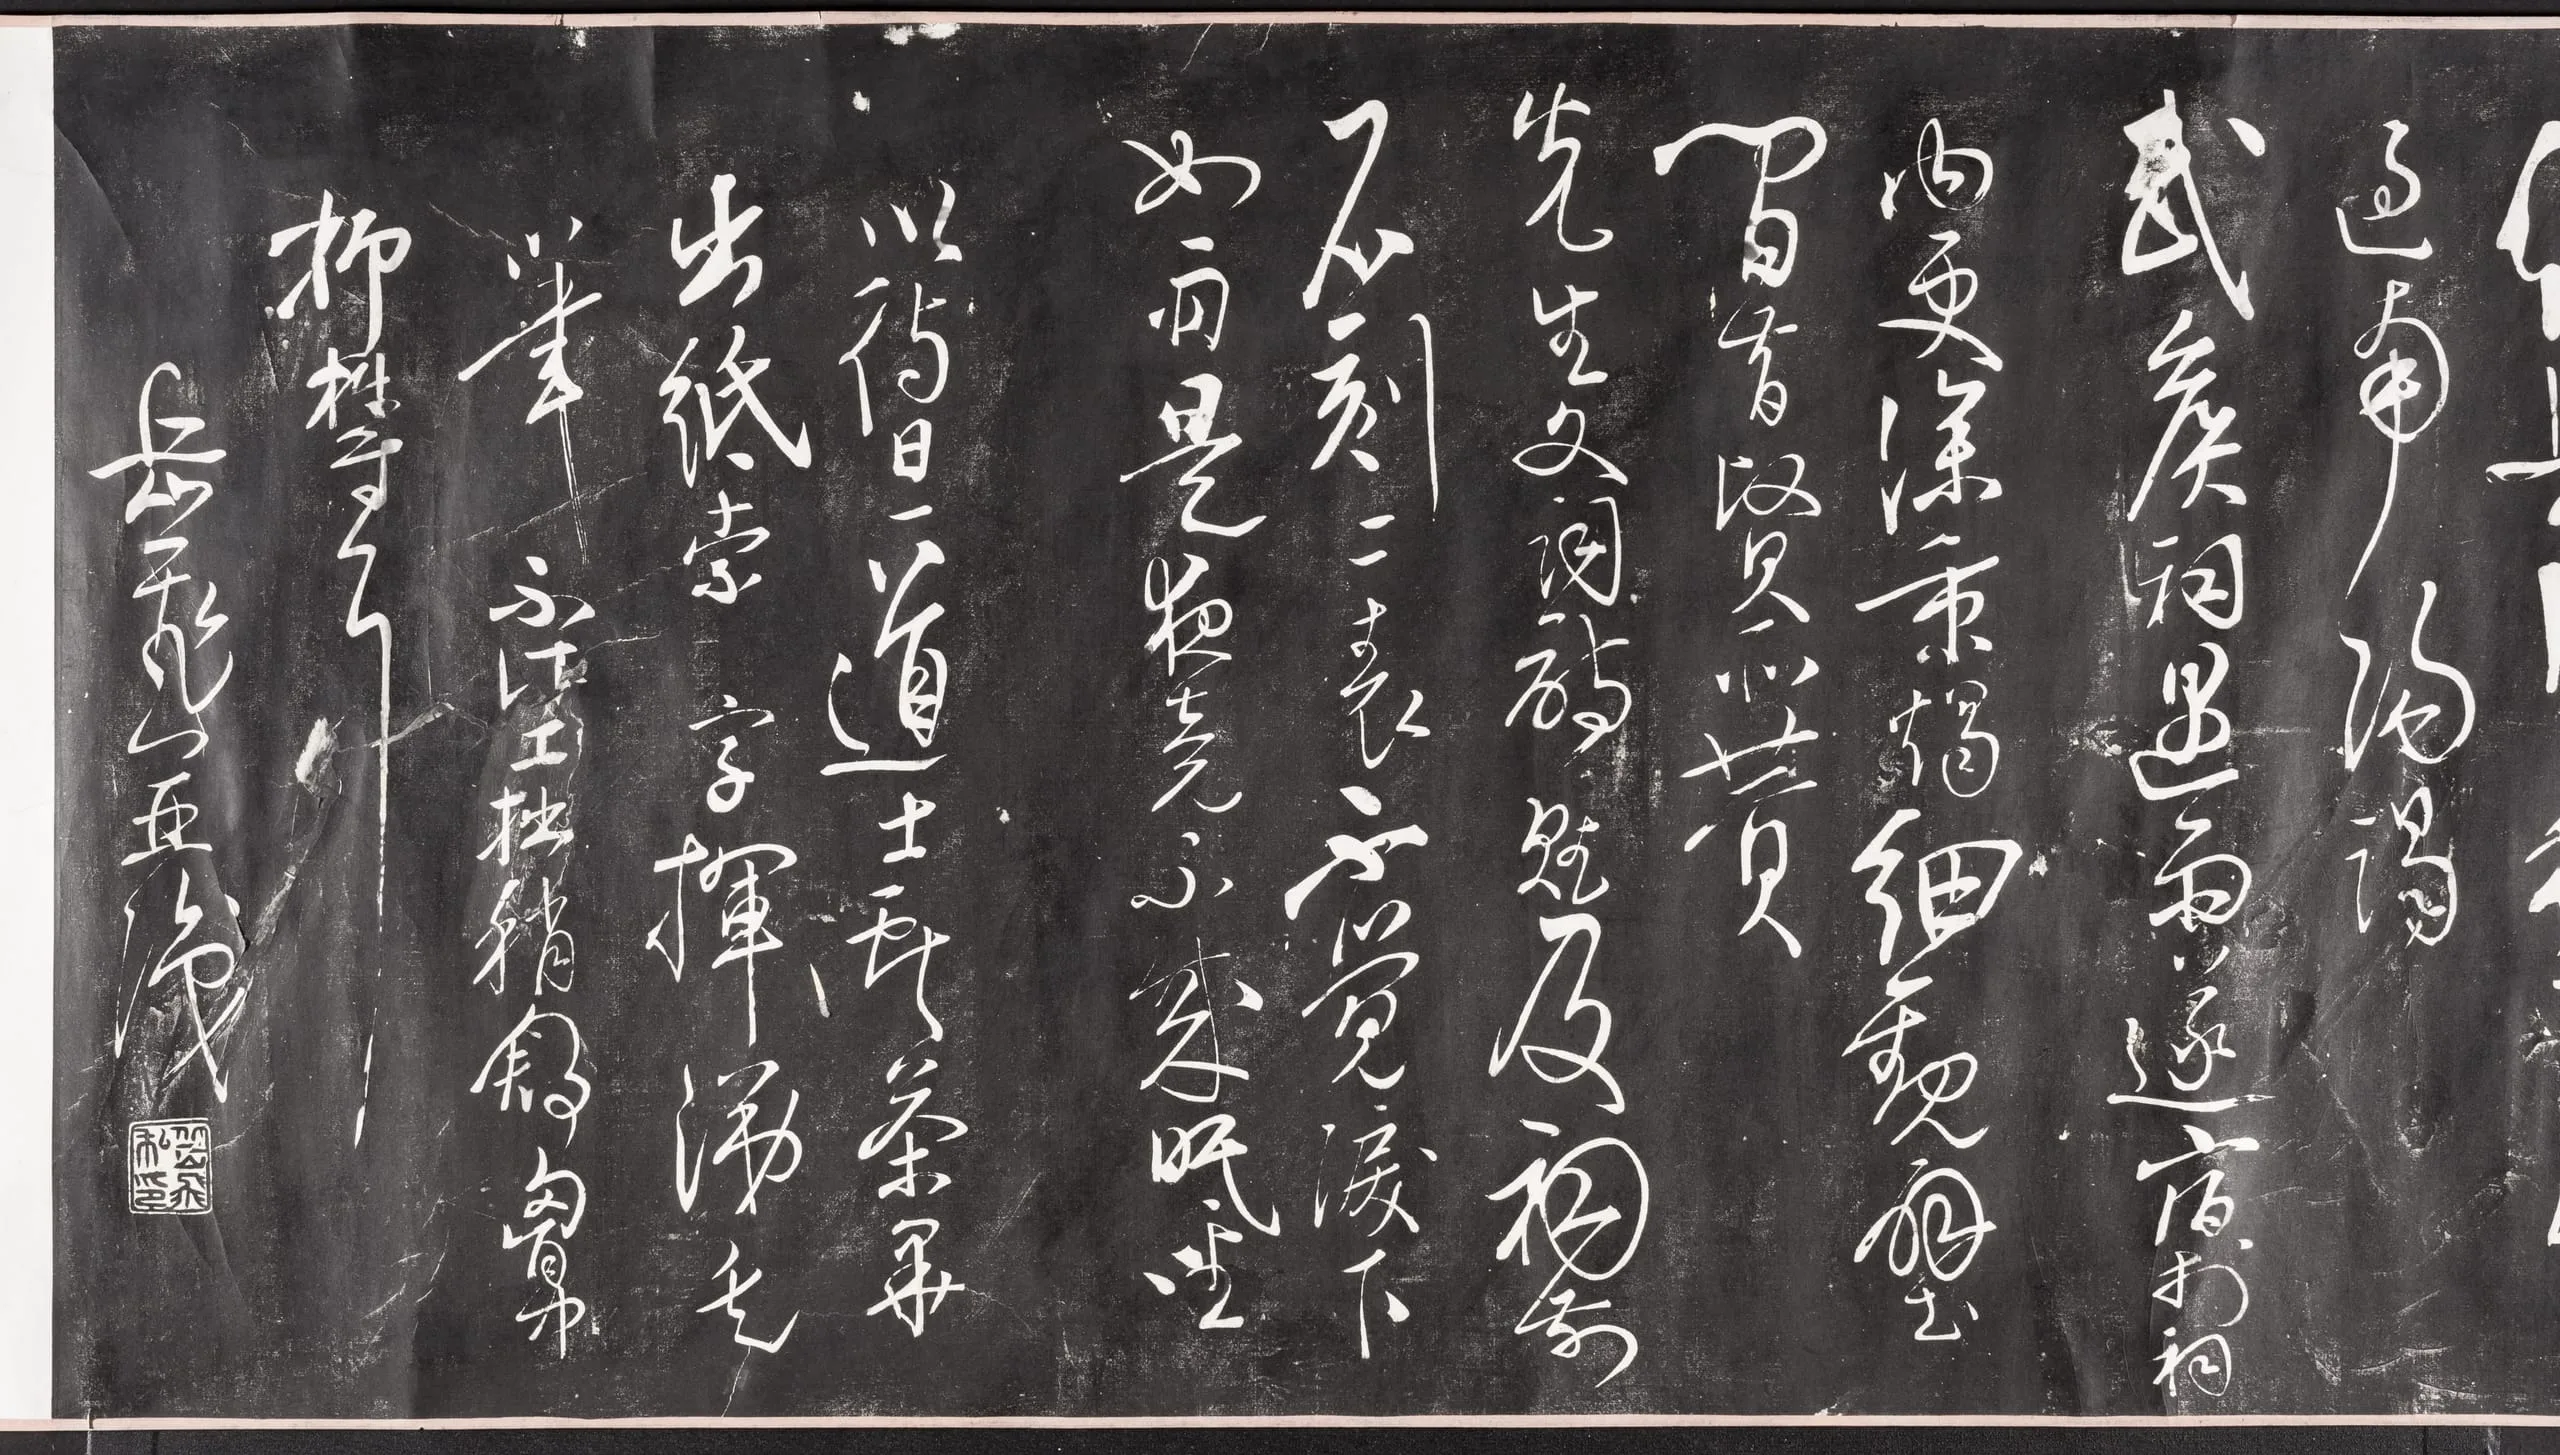 過南陽謁
武侯祠遇雨遂宿於祠
內更深秉燭細觀壁上
昔賢所贊
先生文詞詩賦及祠前
石刻二表不覺淚下
如雨是夜竟不成眠坐
以待旦道士獻茶畢
出紙索字揮涕走
筆不計工拙稍舒胸中
抑鬱耳
岳飛并識
岳飛私印